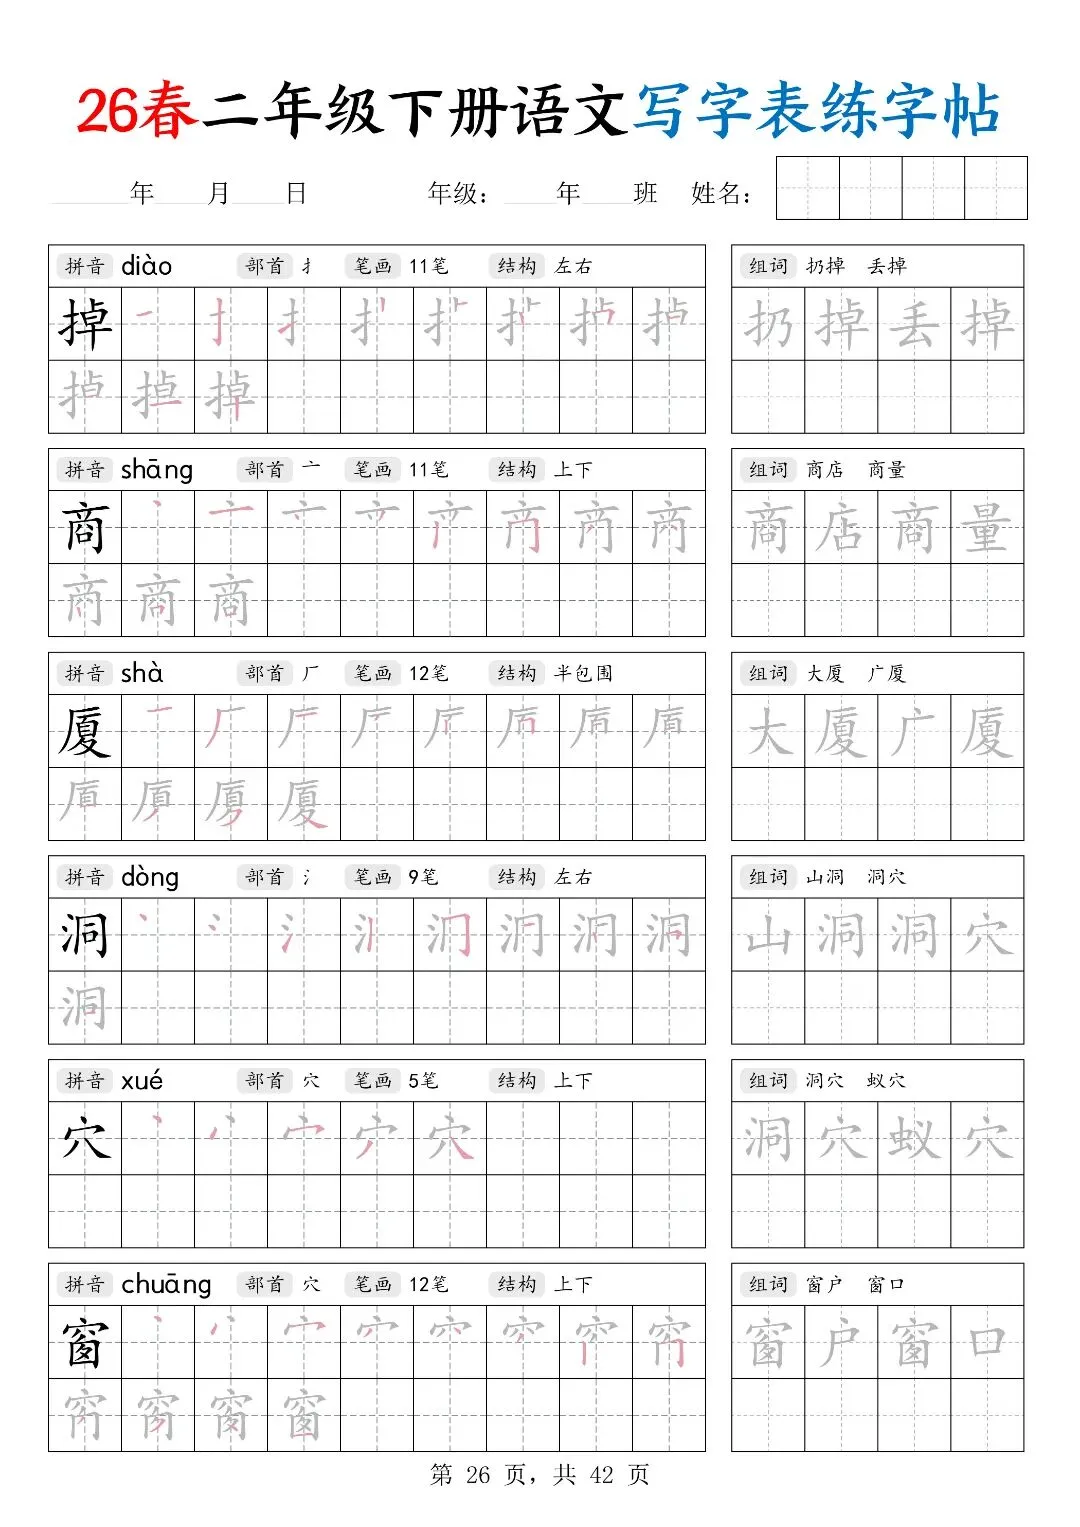 26春二年级下册语文写字表练字帖
年 月 日 年级： 年 班 姓名：
拼音 diào 部首 扌 笔画 11笔 结构 左右 组词 扔掉 丢掉
掉 扔掉丢掉
拼音 shāng 部首 亠 笔画 11笔 结构 上下 组词 商店 商量
商 商店商量
商
拼音 shà 部首 厂 笔画 12笔 结构 半包围 组词 大厦 广厦
厦 大厦广厦
厦
拼音 dòng 部首 氵 笔画 9笔 结构 左右 组词 山洞 洞穴
洞 山洞洞穴
洞
拼音 xué 部首 穴 笔画 5笔 结构 上下 组词 洞穴 蚁穴
穴 穴 洞穴蚁穴
拼音 chuāng 部首 穴 笔画 12笔 结构 上下 组词 窗户 窗口
窗 窗户窗口
窗
第 26 页，共 42 页